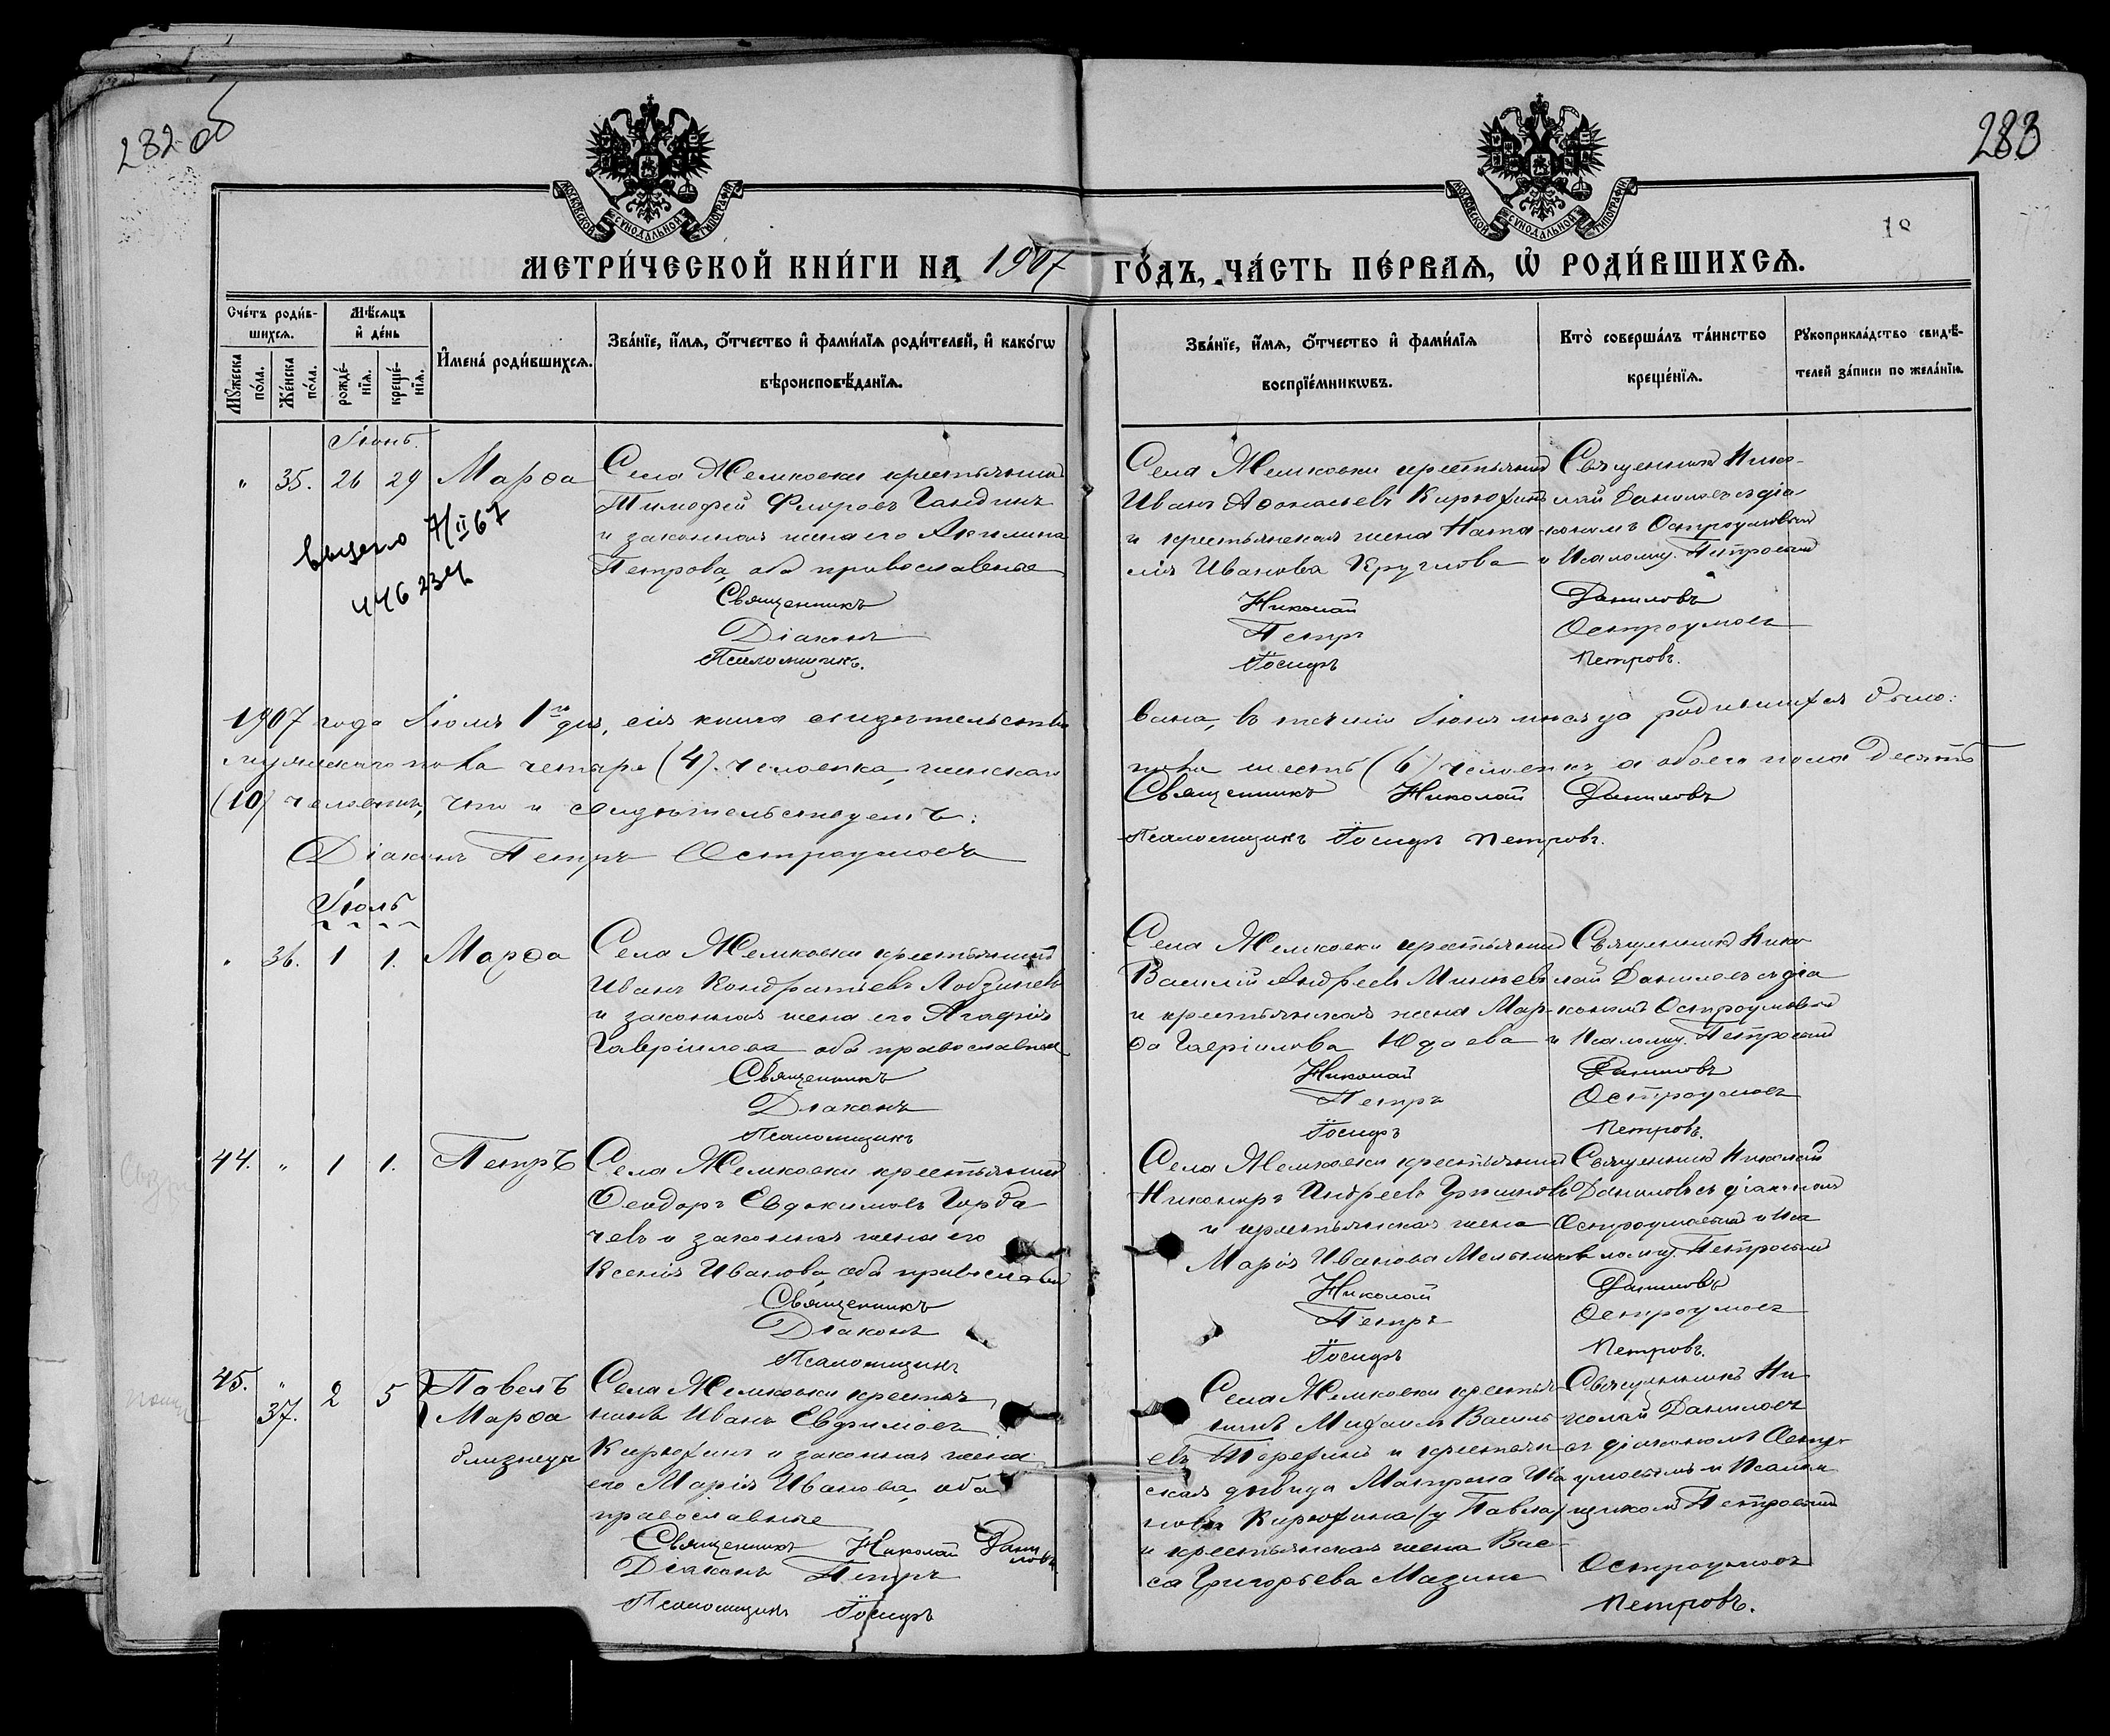 282 об
283
18
МОСКОВСКОЙ СѴНОДАЛЬНОЙ ТИПОГРАФІИ
МОСКОВСКОЙ СѴНОДАЛЬНОЙ ТИПОГРАФІИ
МЕТРИ́ЧЕСКОЙ КНИ́ГИ НА 1907 ГО́ДЪ, ЧА́СТЬ ПЕ́РВАѦ, Ѡ҆ РОДИ́ВШИХСѦ.
Сче́тъ роди́вшихсѧ.
Мꙋ́жеска по́ла.
Же́нска по́ла.
Мѣ́сѧцъ и҆ де́нь
рожде́нїѧ.
креще́нїѧ.
И҆мена̀ роди́вшихсѧ.
Зва́нїе, и҆́мѧ, ѻ҆́тчество и҆ фами́лїѧ роди́телей, и҆ како́гѡ
вѣроисповѣ́данїѧ.
Зва́нїе, и҆́мѧ, ѻ҆́тчество и҆ фами́лїѧ
воспрїе́мникѡвъ.
Кто̀ соверша́лъ та́инство
креще́нїѧ.
Рꙋкоприкла́дство свидѣ́телей за́писи по жела́нїю.
Іюнь.
" 35. 26 29 Марѳа
Села Жемковки крестьянинъ
Тимофей Флоровъ Гандинъ
и законная жена его Акилина
Петрова, оба православные
Священникъ
Діаконъ
Псаломщикъ.
Села Жемковки крестьянинъ
Иванъ Аѳонасьевъ Кирюхинъ
и крестьянская жена Ната-
лія Иванова Круглова
Николай
Петръ
Іосифъ
Священникъ Нико-
лай Даниловъ съ діа-
кономъ Остроумовымъ
и Псаломщ. Петровымъ
Даниловъ
Остроумовъ
Петровъ.
446234
1907 года Іюля 1го дня, сія книга свидѣтельство
вана, въ теченіи Іюня мѣсяца родившихся было:
мужескаго пола четыре (4) человѣка, женскаго
пола шесть (6) человѣкъ, а обоего пола десять
(10) человѣкъ, что и свидѣтельствуемъ:
Священникъ Николай Даниловъ
Діаконъ Петръ Остроумовъ
Псаломщикъ Іосифъ Петровъ.
Іюль
" 36. 1 1. Марѳа
Села Жемковки крестьянинъ
Иванъ Кондратьевъ Лобзиневъ
и законная жена его Агафія
Гавріилова оба православные
Священникъ
Діаконъ
Псаломщикъ
Села Жемковки крестьянинъ
Василій Андреевъ Минѣевъ
и крестьянская жена Мар-
ѳа Гавріилова Юдаева
Николай
Петръ
Іосифъ
Священникъ Нико-
лай Даниловъ съ діа-
кономъ Остроумовымъ
и Псаломщ. Петровымъ
Даниловъ
Остроумовъ
Петровъ.
44. " 1 1. Петръ
Села Жемковки крестьянинъ
Ѳеодоръ Евдокимовъ Горба
чевъ и законная жена его
Ксенія Иванова, оба православные
Священникъ
Діаконъ
Псаломщикъ
Села Жемковки крестьянинъ
Никаноръ Андреевъ Гришинъ
и крестьянская жена
Марія Иванова Мельникова
Николай
Петръ
Іосифъ
Священникъ Николай
Даниловъ съ діакономъ
Остроумовымъ и Пса
ломщ. Петровымъ
Даниловъ
Остроумовъ
Петровъ.
45. " 37. 2 5 Павелъ
Марѳа
близнецы
Села Жемковки крестья
нинъ Иванъ Евфимовъ
Кирюхинъ и законная жена
его Марія Иванова, оба
православные
Священникъ Николай Даниловъ
Діаконъ Петръ
Псаломщикъ Іосифъ
Села Жемковки крестья-
нинъ Михаилъ Василь-
евъ Терехинъ и крестьян-
ская дѣвица Матрена Ива
нова Кирюхина (у Павла)
и крестьянская жена Вас-
са Григорьева Мазина
Священникъ Ни
колай Даниловъ
съ діакономъ Остро
умовымъ и Псалом
щикомъ Петровымъ
Остроумовъ
Петровъ.